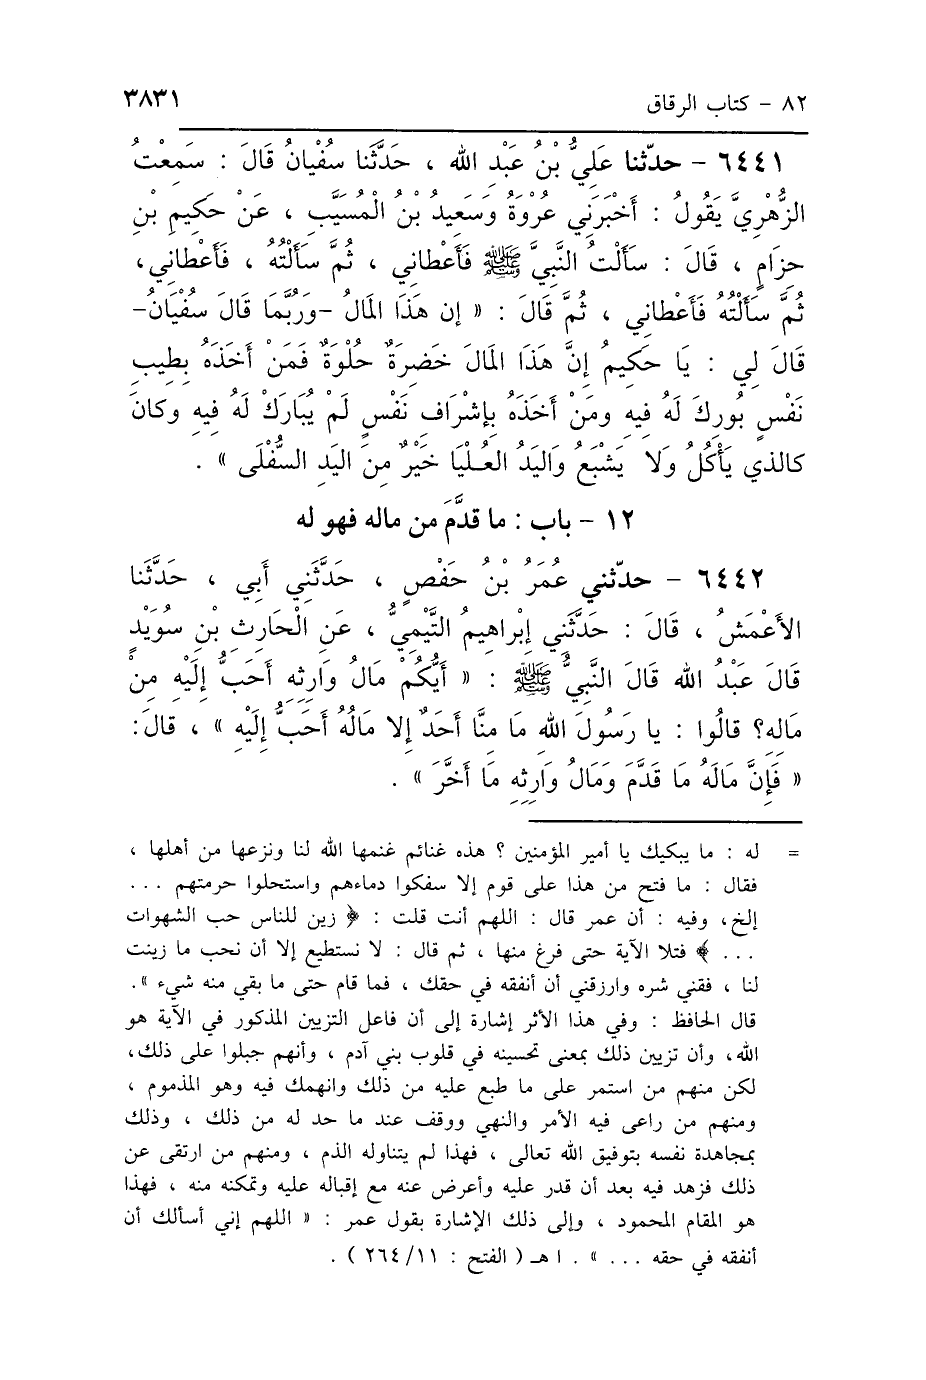 ٨٢ - كتاب الرقاق ٣٨٣١
٦٤٤١ - حدّثنا عَلِيُّ بْنُ عَبْدِ الله ، حَدَّثَنا سُفْيَانُ قَالَ : سَمِعْتُ
الزُّهْرِيَّ يَقُولُ : أَخْبَرَنِي عُرْوَةُ وَسَعِيدُ بْنُ الْمُسَيَّبِ ، عَنْ حَكِيمِ بْنِ
حِزَامٍ ، قَالَ : سَأَلْتُ النَّبِيَّ ﷺ فَأَعْطانِي ، ثُمَّ سَأَلْتُهُ ، فَأَعْطانِي،
ثُمَّ سَأَلْتُهُ فَأَعْطانِي ، ثُمَّ قَالَ : « إن هَذَا المَالُ -وَرُبَّمَا قَالَ سُفْيَانُ-
قَالَ لِي : يَا حَكِيمُ إنَّ هَذَا المَالَ خَضِرَةٌ حُلْوَةٌ فَمَنْ أَخَذَهُ بِطِيبِ
نَفْسٍ بُورِكَ لَهُ فِيهِ ومَنْ أَخَذَهُ بِإشْرَافِ نَفْسٍ لَمْ يُبَارَكْ لَهُ فِيهِ وكانَ
كالذي يَأْكُلُ وَلا يَشْبَعُ وَاليَدُ العُلْيَا خَيْرٌ مِنَ اليَدِ السُّفْلَى » .
١٢ - باب : ما قدَّمَ من ماله فهو له
٦٤٤٢ - حدّثني عُمَرُ بْنُ حَفْصٍ ، حَدَّثَنِي أَبِي ، حَدَّثَنا
الأَعْمَشُ ، قَالَ : حَدَّثَنِي إِبْراهِيمُ التَّيْمِيُّ ، عَنِ الْحَارِثِ بْنِ سوَيْدٍ
قَالَ عَبْدُ الله قَالَ النَّبِيُّ ﷺ : « أَيُّكُمْ مَالُ وَارِثِهِ أَحَبُّ إلَيْهِ مِنْ
مَالِهِ؟ قالُوا : يا رَسُولَ الله مَا مِنَّا أَحَدٌ إلا مَالُهُ أَحَبُّ إلَيْهِ » ، قالَ:
« فَإنَّ مَالَهُ مَا قَدَّمَ وَمَالُ وَارِثِهِ مَا أَخَّرَ » .
= له : ما يبكيك يا أمير المؤمنين ؟ هذه غنائم غنمها الله لنا ونزعها من أهلها ،
فقال : ما فتح من هذا على قوم إلا سفكوا دماءهم واستحلوا حرمتهم ...
إلخ، وفيه : أن عمر قال : اللهم أنت قلت : ﴿ زين للناس حب الشهوات
... ﴾ فتلا الآية حتى فرغ منها ، ثم قال : لا نستطيع إلا أن نحب ما زينت
لنا ، فقني شره وارزقني أن أنفقه في حقك ، فما قام حتى ما بقي منه شيء ».
قال الحافظ : وفي هذا الأثر إشارة إلى أن فاعل التزيين المذكور في الآية هو
الله، وأن تزيين ذلك بمعنى تحسينه في قلوب بني آدم ، وأنهم جبلوا على ذلك،
لكن منهم من استمر على ما طبع عليه من ذلك وانهمك فيه وهو المذموم ،
ومنهم من راعى فيه الأمر والنهي ووقف عند ما حد له من ذلك ، وذلك
بمجاهدة نفسه بتوفيق الله تعالى ، فهذا لم يتناوله الذم ، ومنهم من ارتقى عن
ذلك فزهد فيه بعد أن قدر عليه وأعرض عنه مع إقباله عليه وتمكنه منه ، فهذا
هو المقام المحمود ، وإلى ذلك الإشارة بقول عمر : « اللهم إني أسألك أن
أنفقه في حقه ... » . اهـ ( الفتح : ٢٦٤/١١ ) .